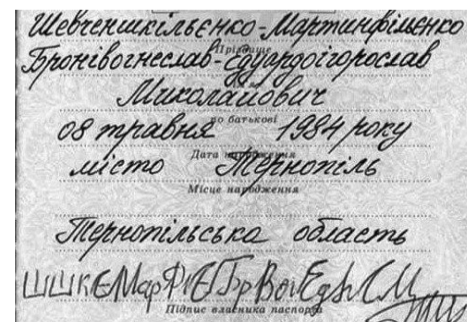 Шевченшкільєнко-Мартинфільєнко
Прізвище
Бронівогнеслав-Едуардоігорослав
Миколайович
по батькові
08 травня 1984 року
Дата народження
місто Тернопіль
Місце народження
Тернопільська область
Підпис власника паспорта